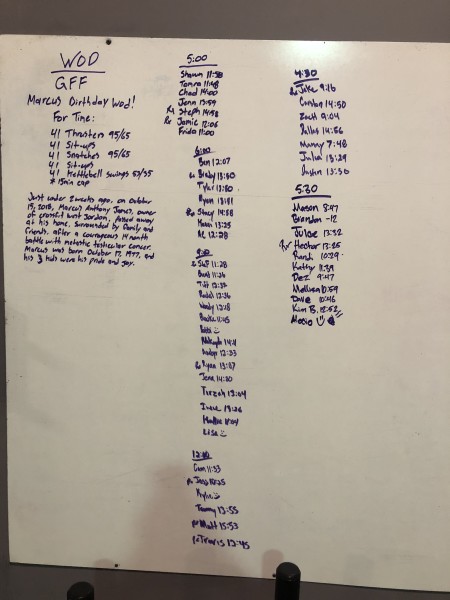 WOD
GFF
Marcus Birthday Wod!
For Time:
41 Thrusters 95/65
41 Sit-ups
41 Snatches 95/65
41 Sit-ups
41 Kettlebell swings 53/35
* 15min cap
Just under 2 weeks ago, on October
15, 2018, Marcus Anthony Jones, owner
of crossfit west Jordan, passed away
at his home, surrounded by family and
friends, after a courageous 14 month
battle with metastic testicular cancer.
Marcus was born October 17, 1977, and
his 3 kids were his pride and joy.
5:00
Shawn 11:58
Tamra 11:48
Chad 14:00
Jenn 13:59
Rx Steph 14:58
Rx Jamie 12:06
Frida 11:00
6:00
Ben 12:07
Tyler 13:50
Ryan 13:51
Rx Stacy 14:58
13:25
12:28
9:30
11:28
11:26
Tiff 12:32
12:36
Wendy 12:28
11:45
12:33
Rx Ryan 13:07
Jenn 14:20
Tirzah 13:04
Irene 13:26
Lisa
12:00
Cam 11:33
Kylie
Tammy 13:55
Rx Matt 15:53
Rx Travis 12:45
4:30
Rx Jake 9:16
14:50
Zach 9:04
14:56
Manny 7:48
Julia 13:29
Dustin 13:30
5:30
Mason 8:47
Brandon -12
13:32
Rx Hector 13:25
Randi 10:29
Kathy 11:39
Dez 9:47
10:59
Dave 10:46
Kim B. 12:52